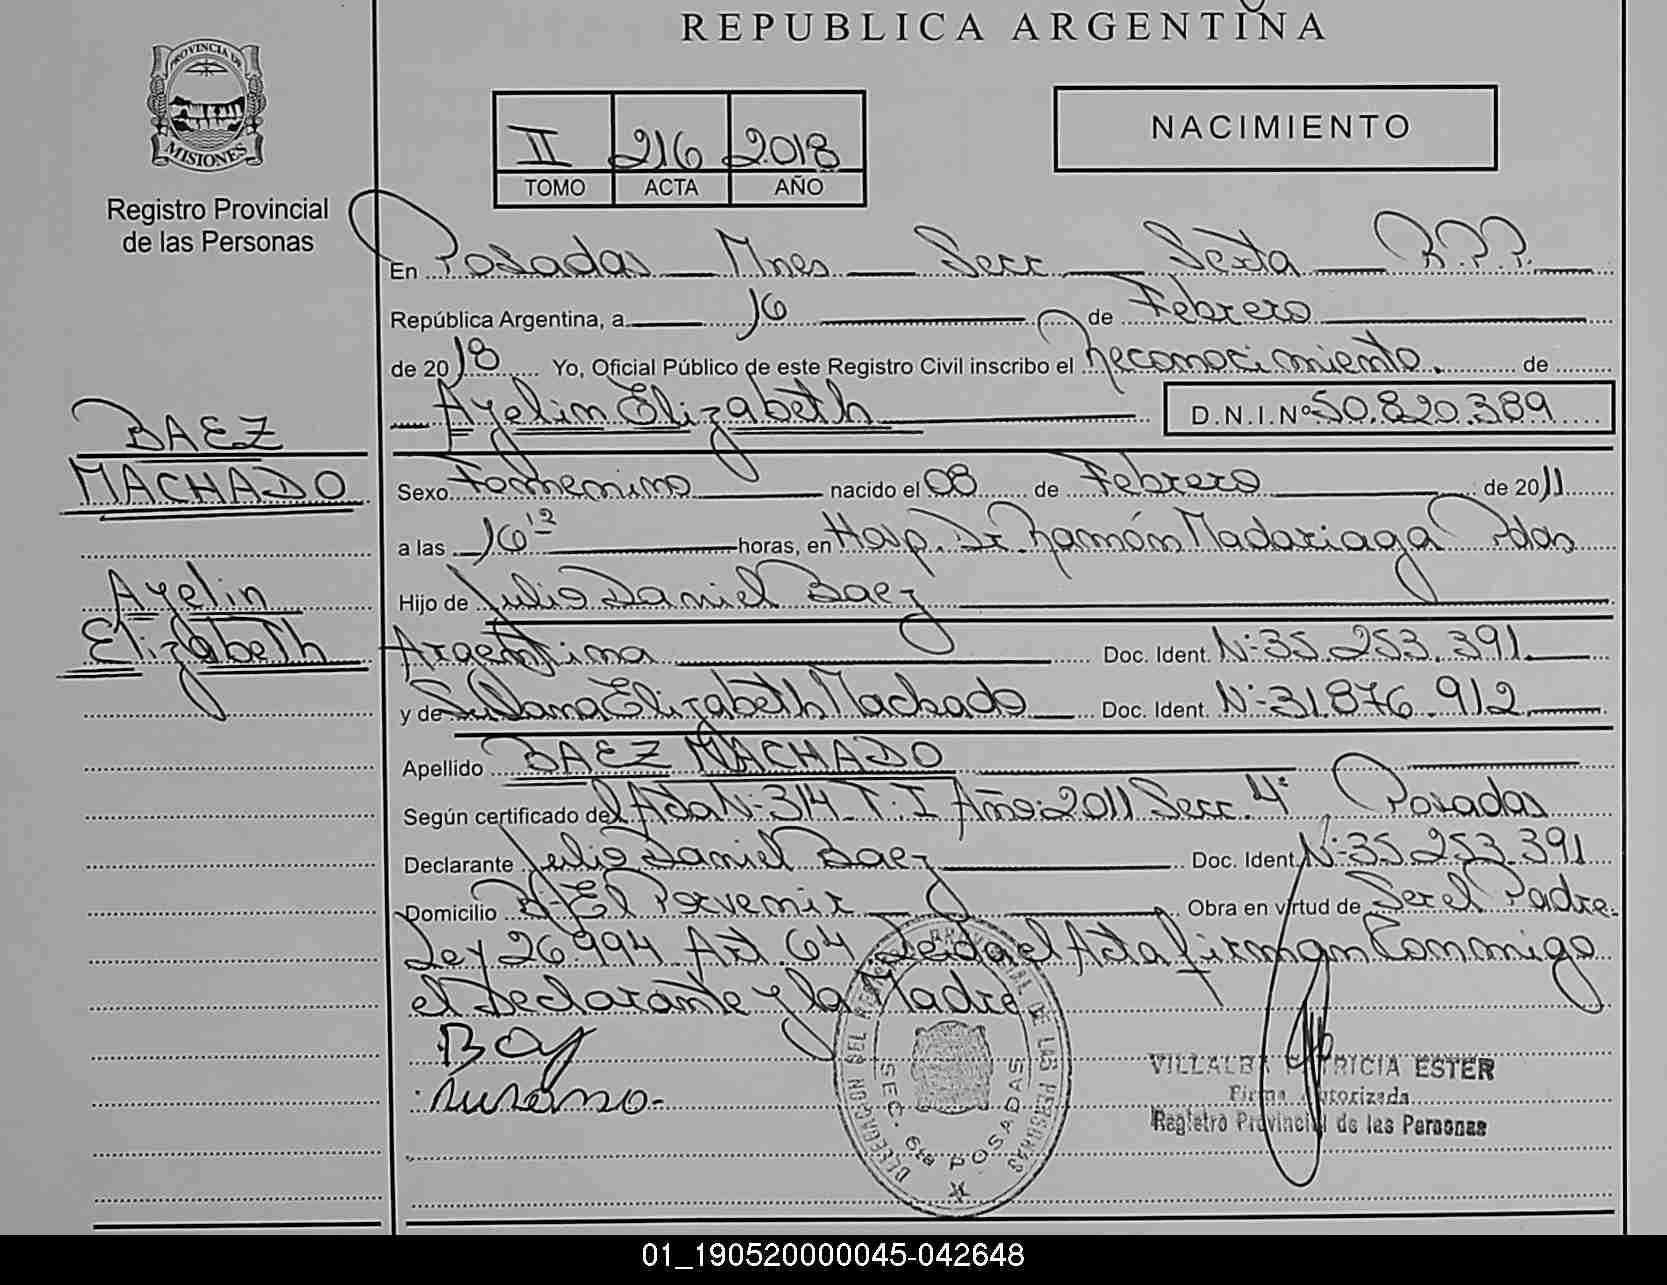 REPUBLICA ARGENTINA
PROVINCIA DE
MISIONES
Registro Provincial
de las Personas
II 216 2018
TOMO ACTA AÑO
NACIMIENTO
En Posadas Mnes Secc Sexta R.P.P.
República Argentina, a 16 de Febrero
de 2018 Yo, Oficial Público de este Registro Civil inscribo el Reconocimiento. de
Ayelin Elizabeth D.N.I.Nº 50.820.389
BAEZ
MACHADO
Ayelin
Elizabeth
Sexo Femenino nacido el 08 de Febrero de 2011
a las 16 12 horas, en Hosp. Dr. Ramón Madariaga Pdas
Hijo de Julio Daniel Baez
Argentina Doc. Ident. Nº 35.253.391
y de Susana Elizabeth Machado Doc. Ident. Nº 31.876.912
Apellido BAEZ MACHADO
Según certificado del Acta Nº 314 T. I Año: 2011 Secc. 4ª Posadas
Declarante Julio Daniel Baez Doc. Ident. Nº 35.253.391
Domicilio Bº El Porvenir Obra en virtud de Ser el Padre.
Ley 26.994 Art. 64 Leida el Acta firman Conmigo
el Declarante y la Madre
DELEGACION DEL REGISTRO PROVINCIAL DE LAS PERSONAS
SEC. 6ta POSADAS
VILLALBA PATRICIA ESTER
Firma Autorizada
Registro Provincial de las Personas
01_190520000045-042648